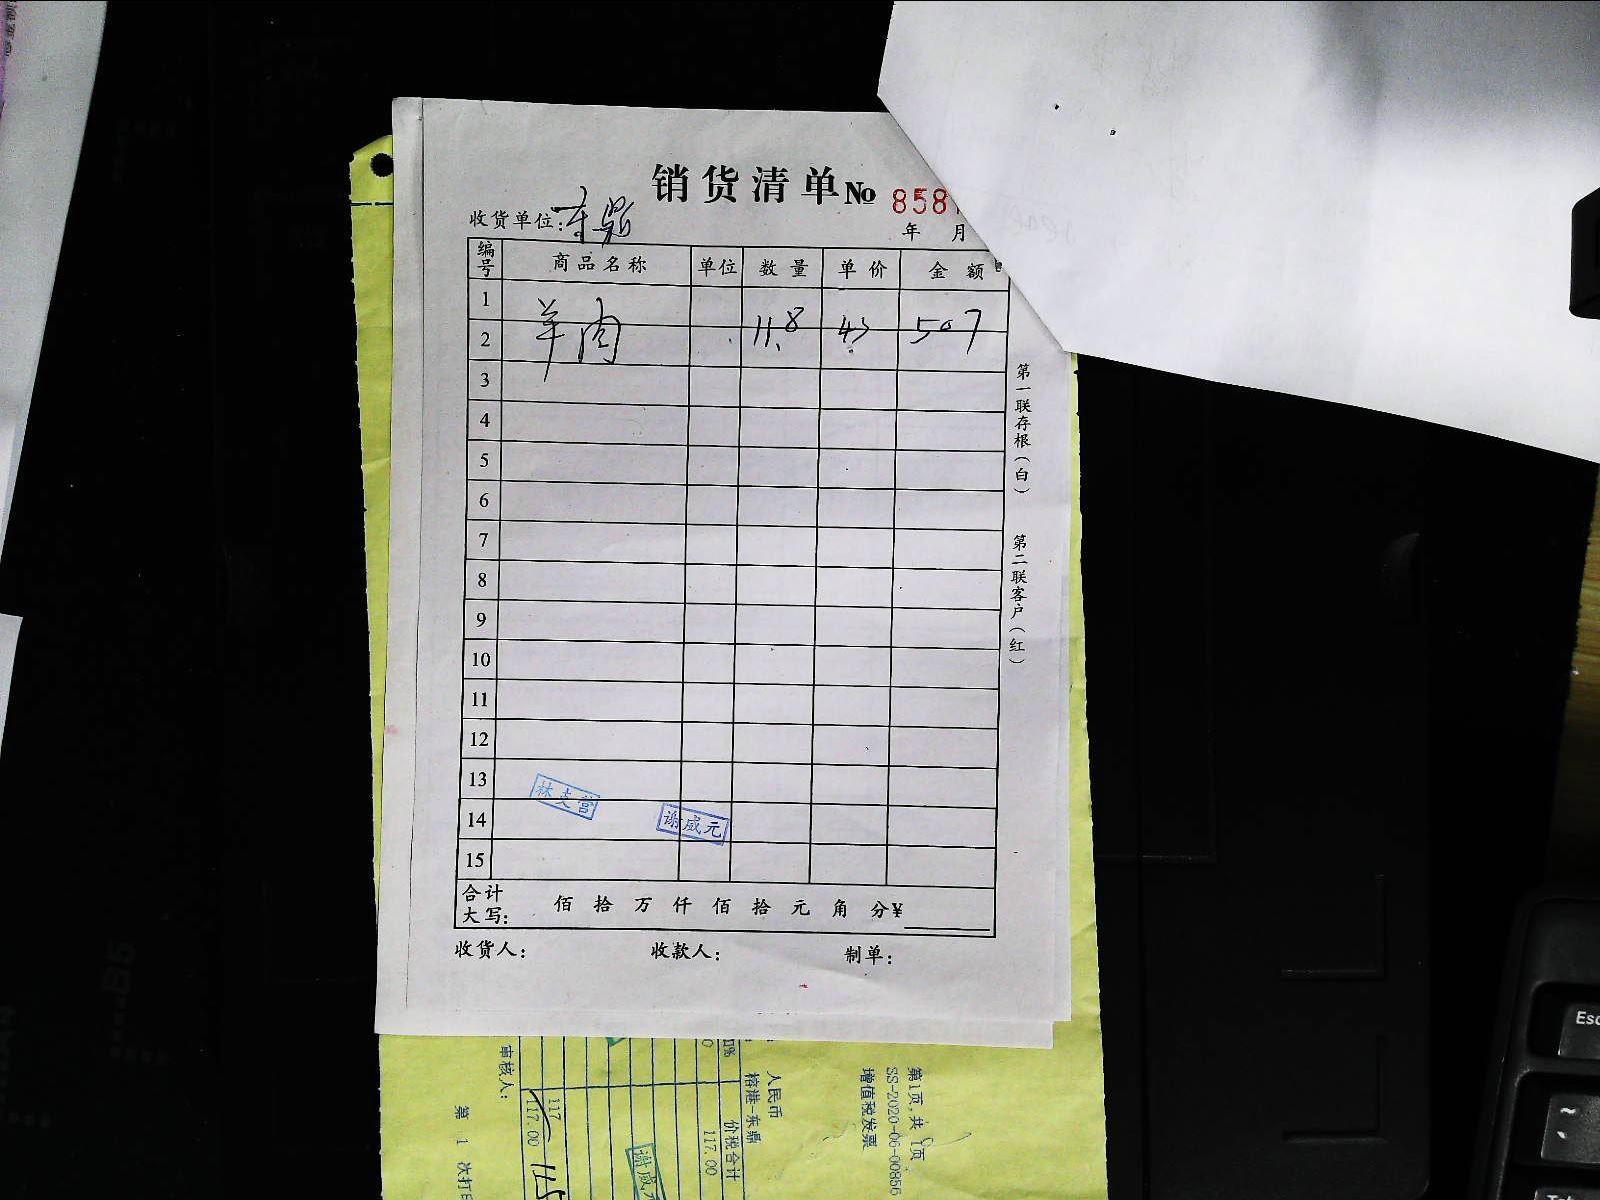 销货清单 № 858
收货单位: 东鼎
年 月
编号 商品名称 单位 数量 单价 金额
1
羊肉 11.8 43 507
2
3
4
5
6
7
8
9
10
11
12
13
林支营
14
谢威元
15
合计大写: 佰 拾 万 仟 佰 拾 元 角 分¥
收货人: 收款人: 制单:
第一联存根(白)
第二联客户(红)
第1页,共1页
SS-2020-06-00856
增值税发票
人民币
榕港-东鼎
价税合计
117.00
117
117.00
审核人:
第 1 次打
谢威
B5
Esc
~